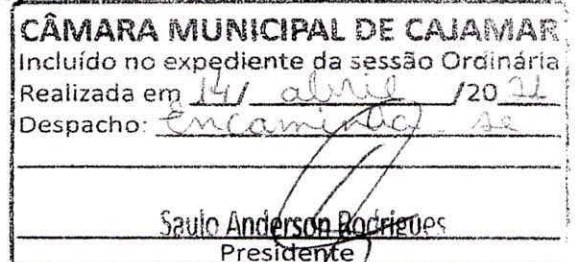 CÂMARA MUNICIPAL DE CAJAMAR
Incluído no expediente da sessão Ordinária
Realizada em 14/ abril /20 21
Despacho: Encaminha-se
Saulo Anderson Rodrigues
Presidente